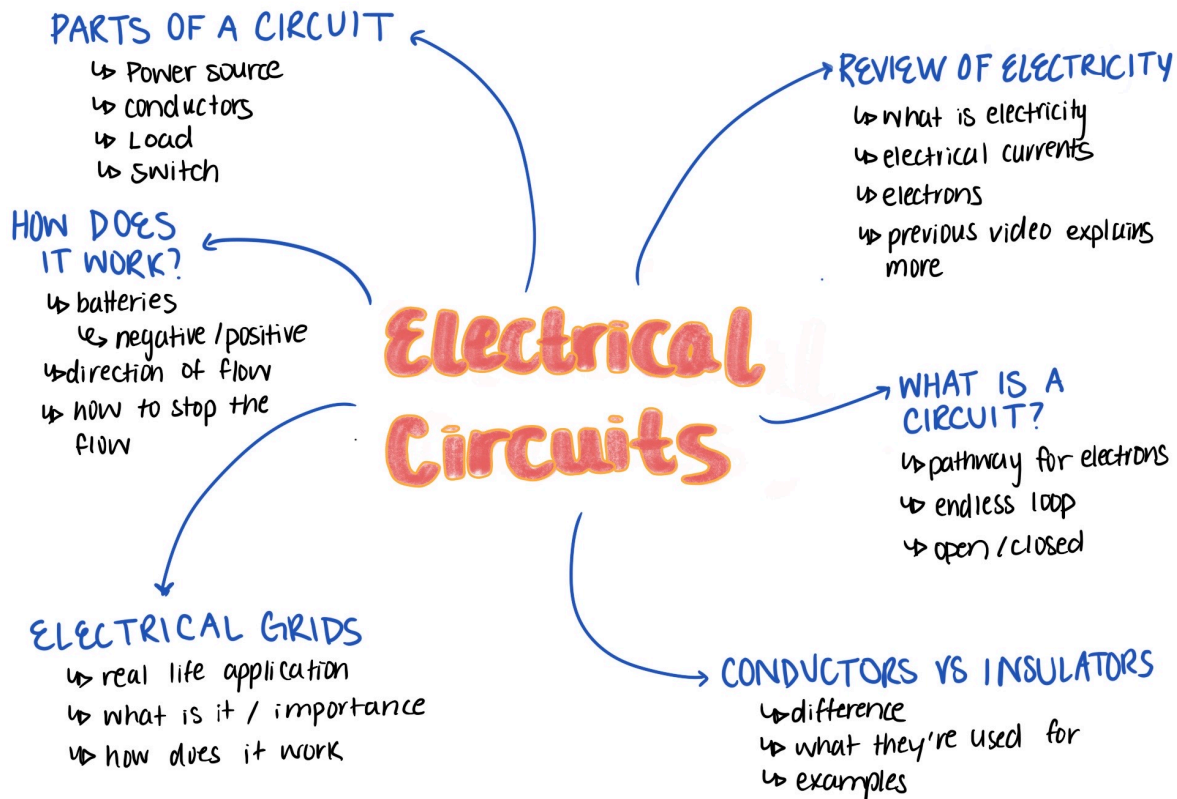 Electrical
Circuits
PARTS OF A CIRCUIT
↳ Power source
↳ conductors
↳ Load
↳ switch
HOW DOES
IT WORK?
↳ batteries
↳ negative/positive
↳ direction of flow
↳ how to stop the
flow
ELECTRICAL GRIDS
↳ real life application
↳ what is it / importance
↳ how does it work
REVIEW OF ELECTRICITY
↳ what is electricity
↳ electrical currents
↳ electrons
↳ previous video explains
more
WHAT IS A
CIRCUIT?
↳ pathway for electrons
↳ endless loop
↳ open/closed
CONDUCTORS VS INSULATORS
↳ difference
↳ what they're used for
↳ examples